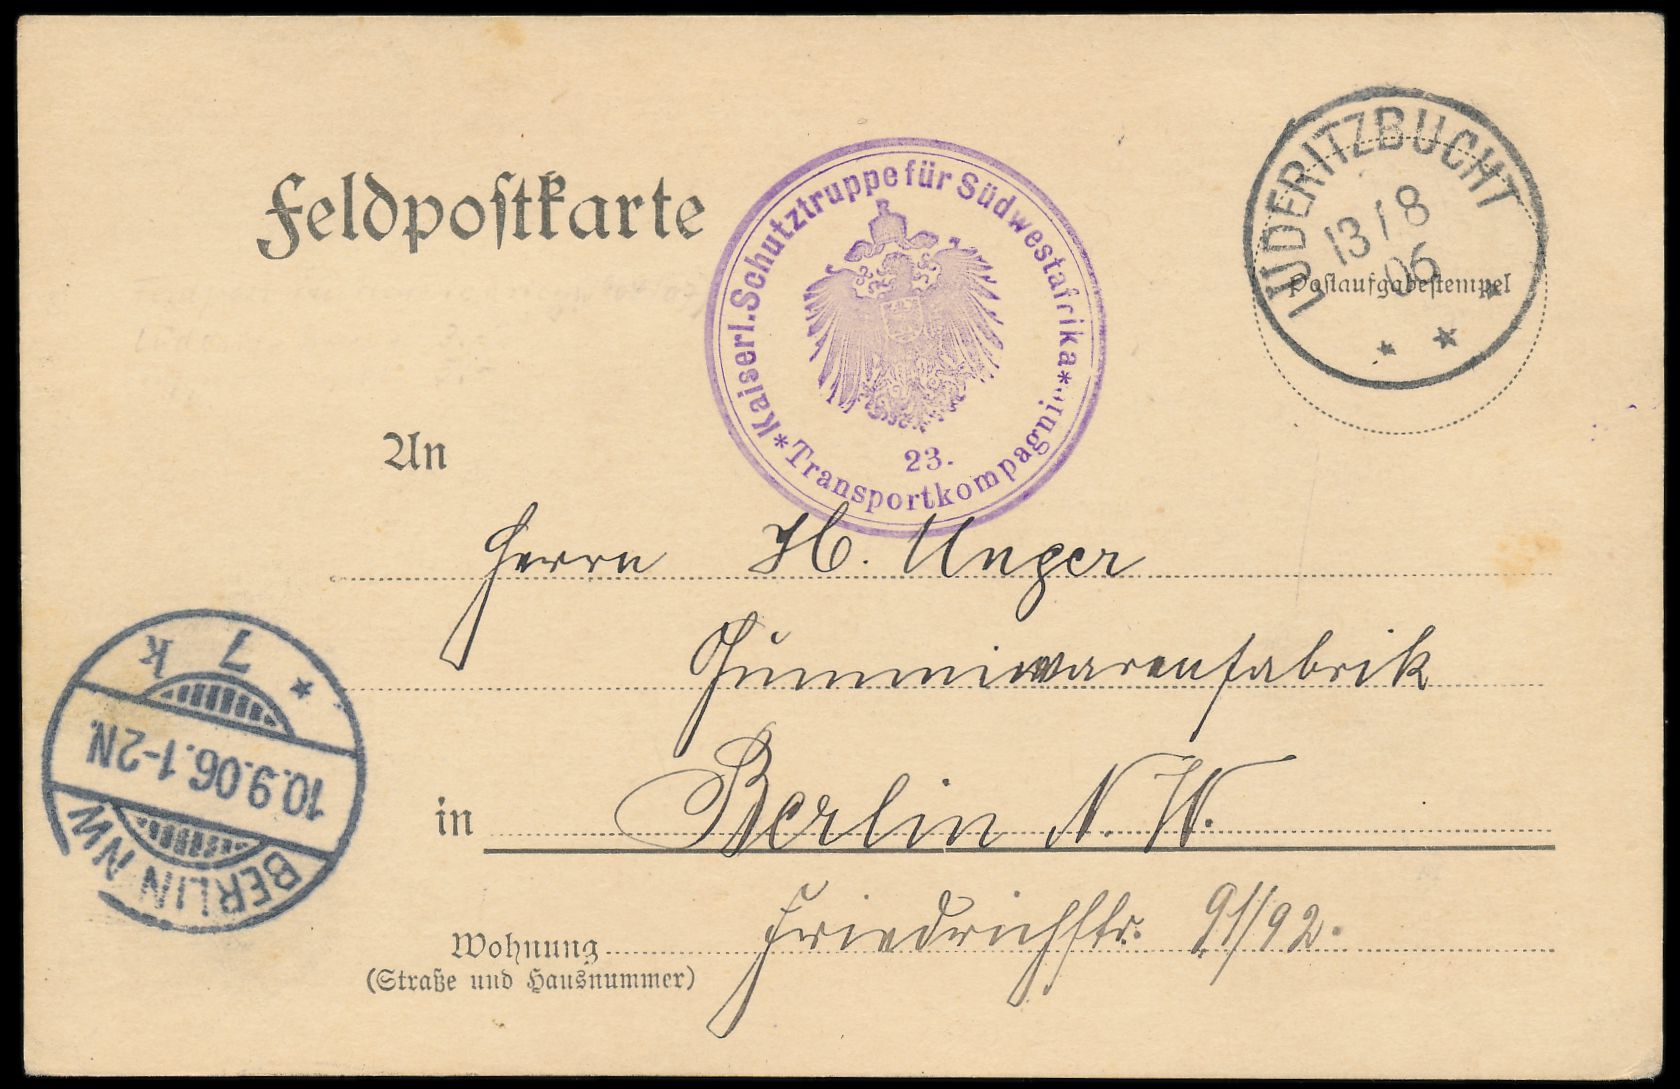 Feldpostkarte
*Kaiserl. Schutztruppe für Südwestafrika*
23.
Transportkompagnie
LÜDERITZBUCHT
13/8
06
Postaufgabestempel
An
Herrn H. Unger
Gummiwarenfabrik
in Berlin N.W.
Wohnung Friedrichstr. 91/92.
(Straße und Hausnummer)
BERLIN NW
10.9.06.1-2N.
7 k